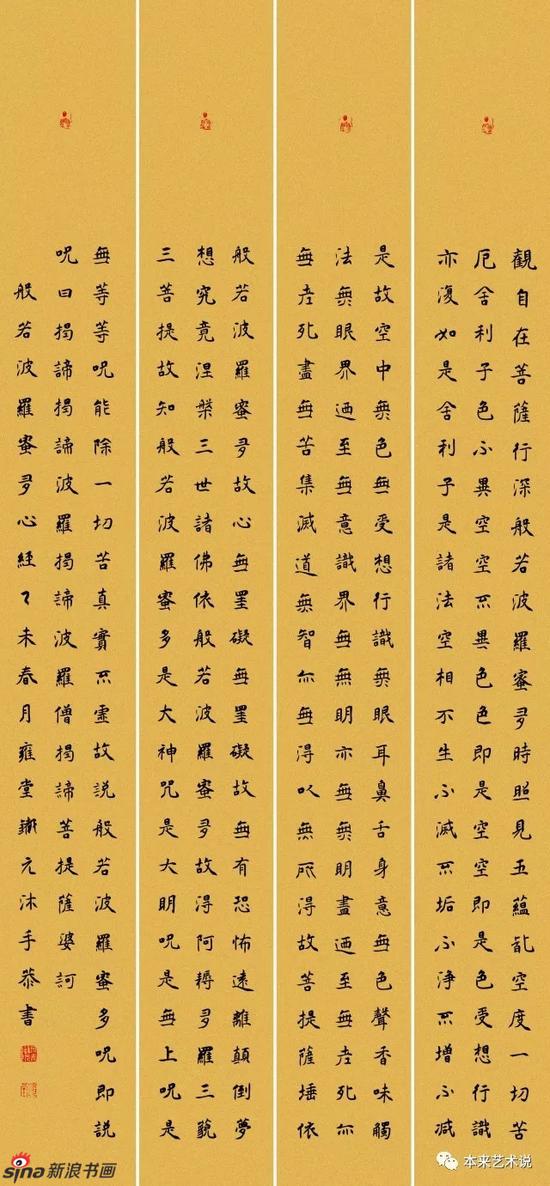 觀自在菩薩行深般若波羅蜜多時照見五蘊皆空度一切苦
厄舍利子色不異空空不異色色即是空空即是色受想行識
亦復如是舍利子是諸法空相不生不滅不垢不淨不增不減
是故空中無色無受想行識無眼耳鼻舌身意無色聲香味觸
法無眼界迺至無意識界無無明亦無無明盡迺至無老死亦
無老死盡無苦集滅道無智亦無得以無所得故菩提薩埵依
般若波羅蜜多故心無罣礙無罣礙故無有恐怖遠離顛倒夢
想究竟涅槃三世諸佛依般若波羅蜜多故得阿耨多羅三藐
三菩提故知般若波羅蜜多是大神咒是大明呪是無上呪是
無等等呪能除一切苦真實不虛故説般若波羅蜜多呪即説
呪曰揭諦揭諦波羅揭諦波羅僧揭諦菩提薩婆訶
般若波羅蜜多心經乙未春月雍堂元沐手恭書
sina新浪书画
本来艺术说